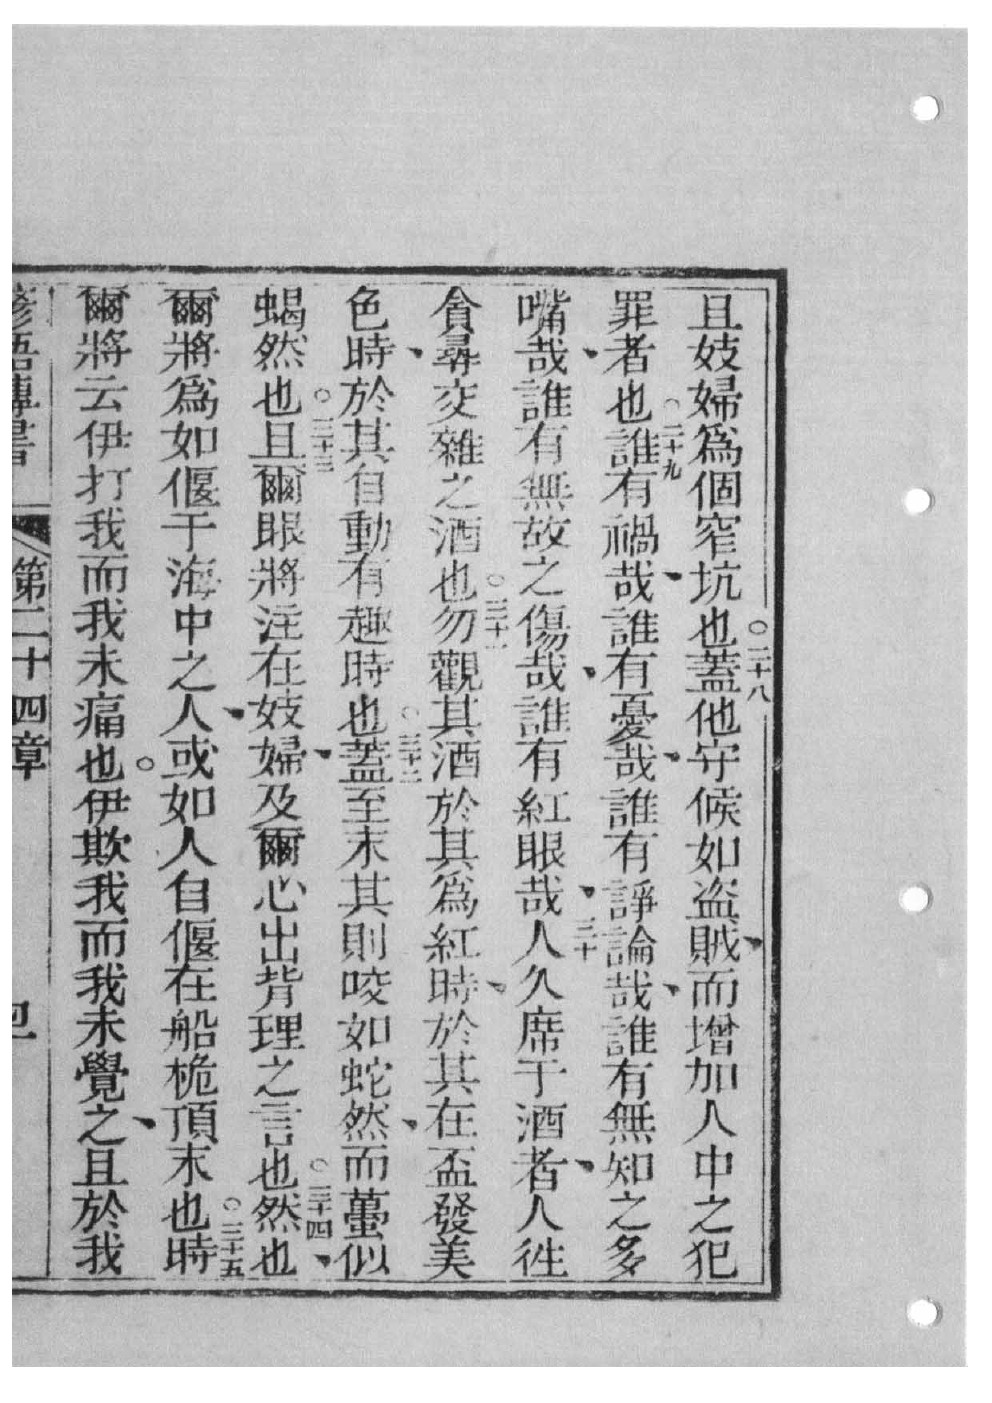 且妓婦爲個窄坑也○二十八蓋他守候如盗賊、而增加人中之犯
罪者也○二十九誰有禍哉、誰有憂哉、誰有諍論哉、誰有無知之多
嘴哉、誰有無故之傷哉、誰有紅眼哉、三十人久席于酒者、人徃
貪尋、交雜之酒也○三十一勿觀其酒於其爲紅時、於其在盃發美
色時、於其自動有趣時也○三十二蓋至末其則咬如蛇然、而蠆似
蝎然也○三十三且爾眼將注在妓婦、及爾心出背理之言也○三十四然也、
爾將爲如偃于海中之人、或如人自偃在船桅頂末也○三十五時
爾將云伊打我而我未痛也○伊欺我而我未覺之、且於我
諺語傳書 第二十四章